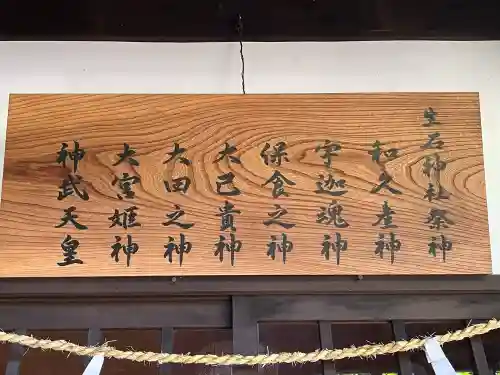 生石神社祭神
和久産神
宇迦魂神
保食之神
大己貴神
大田之神
大宮姫神
神武天皇